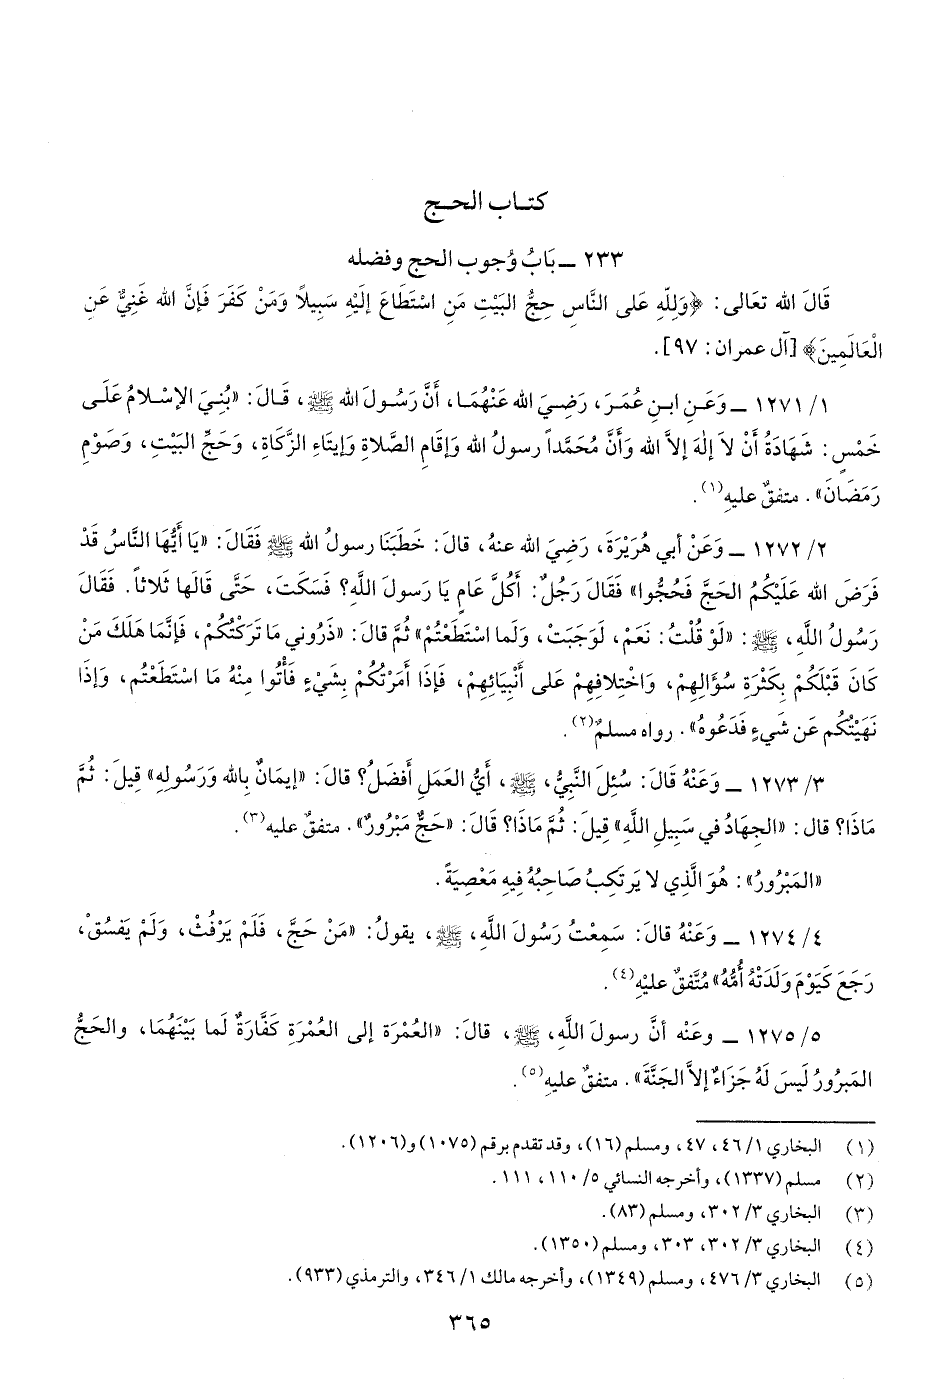 كتـاب الحـج
٢٣٣ ـ بَابُ وُجوب الحج وفضله
قَالَ الله تعَالى: ﴿وَلِلّهِ عَلى النَّاسِ حِجُّ البَيْتِ مَنِ اسْتَطَاعَ إلَيْهِ سَبِيلاً وَمَنْ كَفَرَ فَإنَّ الله غَنِيٌّ عَنِ
الْعَالَمِينَ﴾ [آل عمران: ٩٧].
١/ ١٢٧١ ـ وَعَنِ ابنِ عُمَرَ، رَضِيَ الله عَنْهُمَا، أَنَّ رَسُولَ الله ﷺ، قَـالَ: «بُنِيَ الإسْلامُ عَلَـى
خَمْسٍ: شَهَادَةُ أَنْ لاَ إلٰهَ إلاَّ الله وَأَنَّ مُحَمَّداً رسولُ الله وَإقَامِ الصَّلاةِ وَإيتَاءِ الزَّكَاةِ، وَحَجِّ البَيْتِ، وَصَوْمِ
رَمَضَانَ». متفقٌ عليهِ(١).
٢/ ١٢٧٢ ـ وَعَنْ أبي هُرَيْرَةَ، رَضِيَ الله عنهُ، قالَ: خَطَبَنَا رسولُ الله ﷺ فَقَالَ: «يَا أَيُّهَا النَّاسُ قَدْ
فَرَضَ الله عَلَيْكُمُ الحَجَّ فَحُجُّوا» فَقَالَ رَجُلٌ: أَكُلَّ عَامٍ يَا رَسولَ اللَّهِ؟ فَسَكَتَ، حَتَّى قَالَها ثَلاثاً. فَقَالَ
رَسُولُ اللَّهِ، ﷺ: «لَوْ قُلْتُ: نَعَمْ، لَوَجَبَتْ، وَلَما اسْتَطَعْتُمْ» ثُمَّ قالَ: «ذَرُوني مَا تَرَكْتُكُمْ، فَإنَّمَا هَلَكَ مَنْ
كَانَ قَبْلَكُمْ بِكَثْرَةِ سُؤَالِهِمْ، وَاخْتِلافِهِمْ عَلى أَنْبِيَائِهِمْ، فَإذَا أَمَرْتُكُمْ بِشَيْءٍ فَأْتُوا مِنْهُ مَا اسْتَطَعْتُم، وَإذَا
نَهَيْتُكُم عَن شَيءٍ فَدَعُوهُ». رواه مسلمٌ(٢).
٣/ ١٢٧٣ ـ وَعَنْهُ قَالَ: سُئِلَ النَّبِيُّ، ﷺ، أَيُّ العَمَلِ أَفضَلُ؟ قالَ: «إيمَانٌ بِالله وَرَسُولِهِ» قِيلَ: ثُمَّ
مَاذَا؟ قال: «الجِهَادُ في سَبِيلِ اللَّهِ» قِيلَ: ثُمَّ مَاذَا؟ قَالَ: «حَجٌّ مَبْرُورٌ». متفقٌ عليه(٣).
«المَبْرُورُ»: هُوَ الَّذِي لا يَرتَكِبُ صَاحِبُهُ فِيهِ مَعْصِيَةً.
٤/ ١٢٧٤ ـ وَعَنْهُ قالَ: سَمِعْتُ رَسُولَ اللَّهِ، ﷺ، يقولُ: «مَنْ حَجَّ، فَلَمْ يَرْفُثْ، وَلَمْ يَفسُقْ،
رَجَعَ كَيَوْمِ وَلَدَتْهُ أُمُّهُ» مُتَّفقٌ عليْهِ(٤).
٥/ ١٢٧٥ ـ وعَنْه أنَّ رسولَ اللَّهِ، ﷺ، قالَ: «العُمْرَة إلى العُمْرَةِ كَفَّارَةٌ لَما بَيْنَهُمَا، والحَجُّ
المَبرُورُ لَيسَ لَهُ جَزَاءٌ إلاَّ الجَنَّةَ». متفقٌ عليهِ(٥).
(١) البخاري ١/ ٤٦، ٤٧، ومسلم (١٦)، وقد تقدم برقم (١٠٧٥) و(١٢٠٦).
(٢) مسلم (١٣٣٧)، وأخرجه النسائي ٥/ ١١٠، ١١١.
(٣) البخاري ٣/ ٣٠٢، ومسلم (٨٣).
(٤) البخاري ٣/ ٣٠٢، ٣٠٣، ومسلم (١٣٥٠).
(٥) البخاري ٣/ ٤٧٦، ومسلم (١٣٤٩)، وأخرجه مالك ١/ ٣٤٦، والترمذي (٩٣٣).
٣٦٥